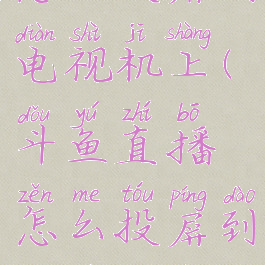 diàn shì jī shàng
电视机上(
dǒu yú zhí bō
斗鱼直播
zěn me tóu píng dào
怎么投屏到